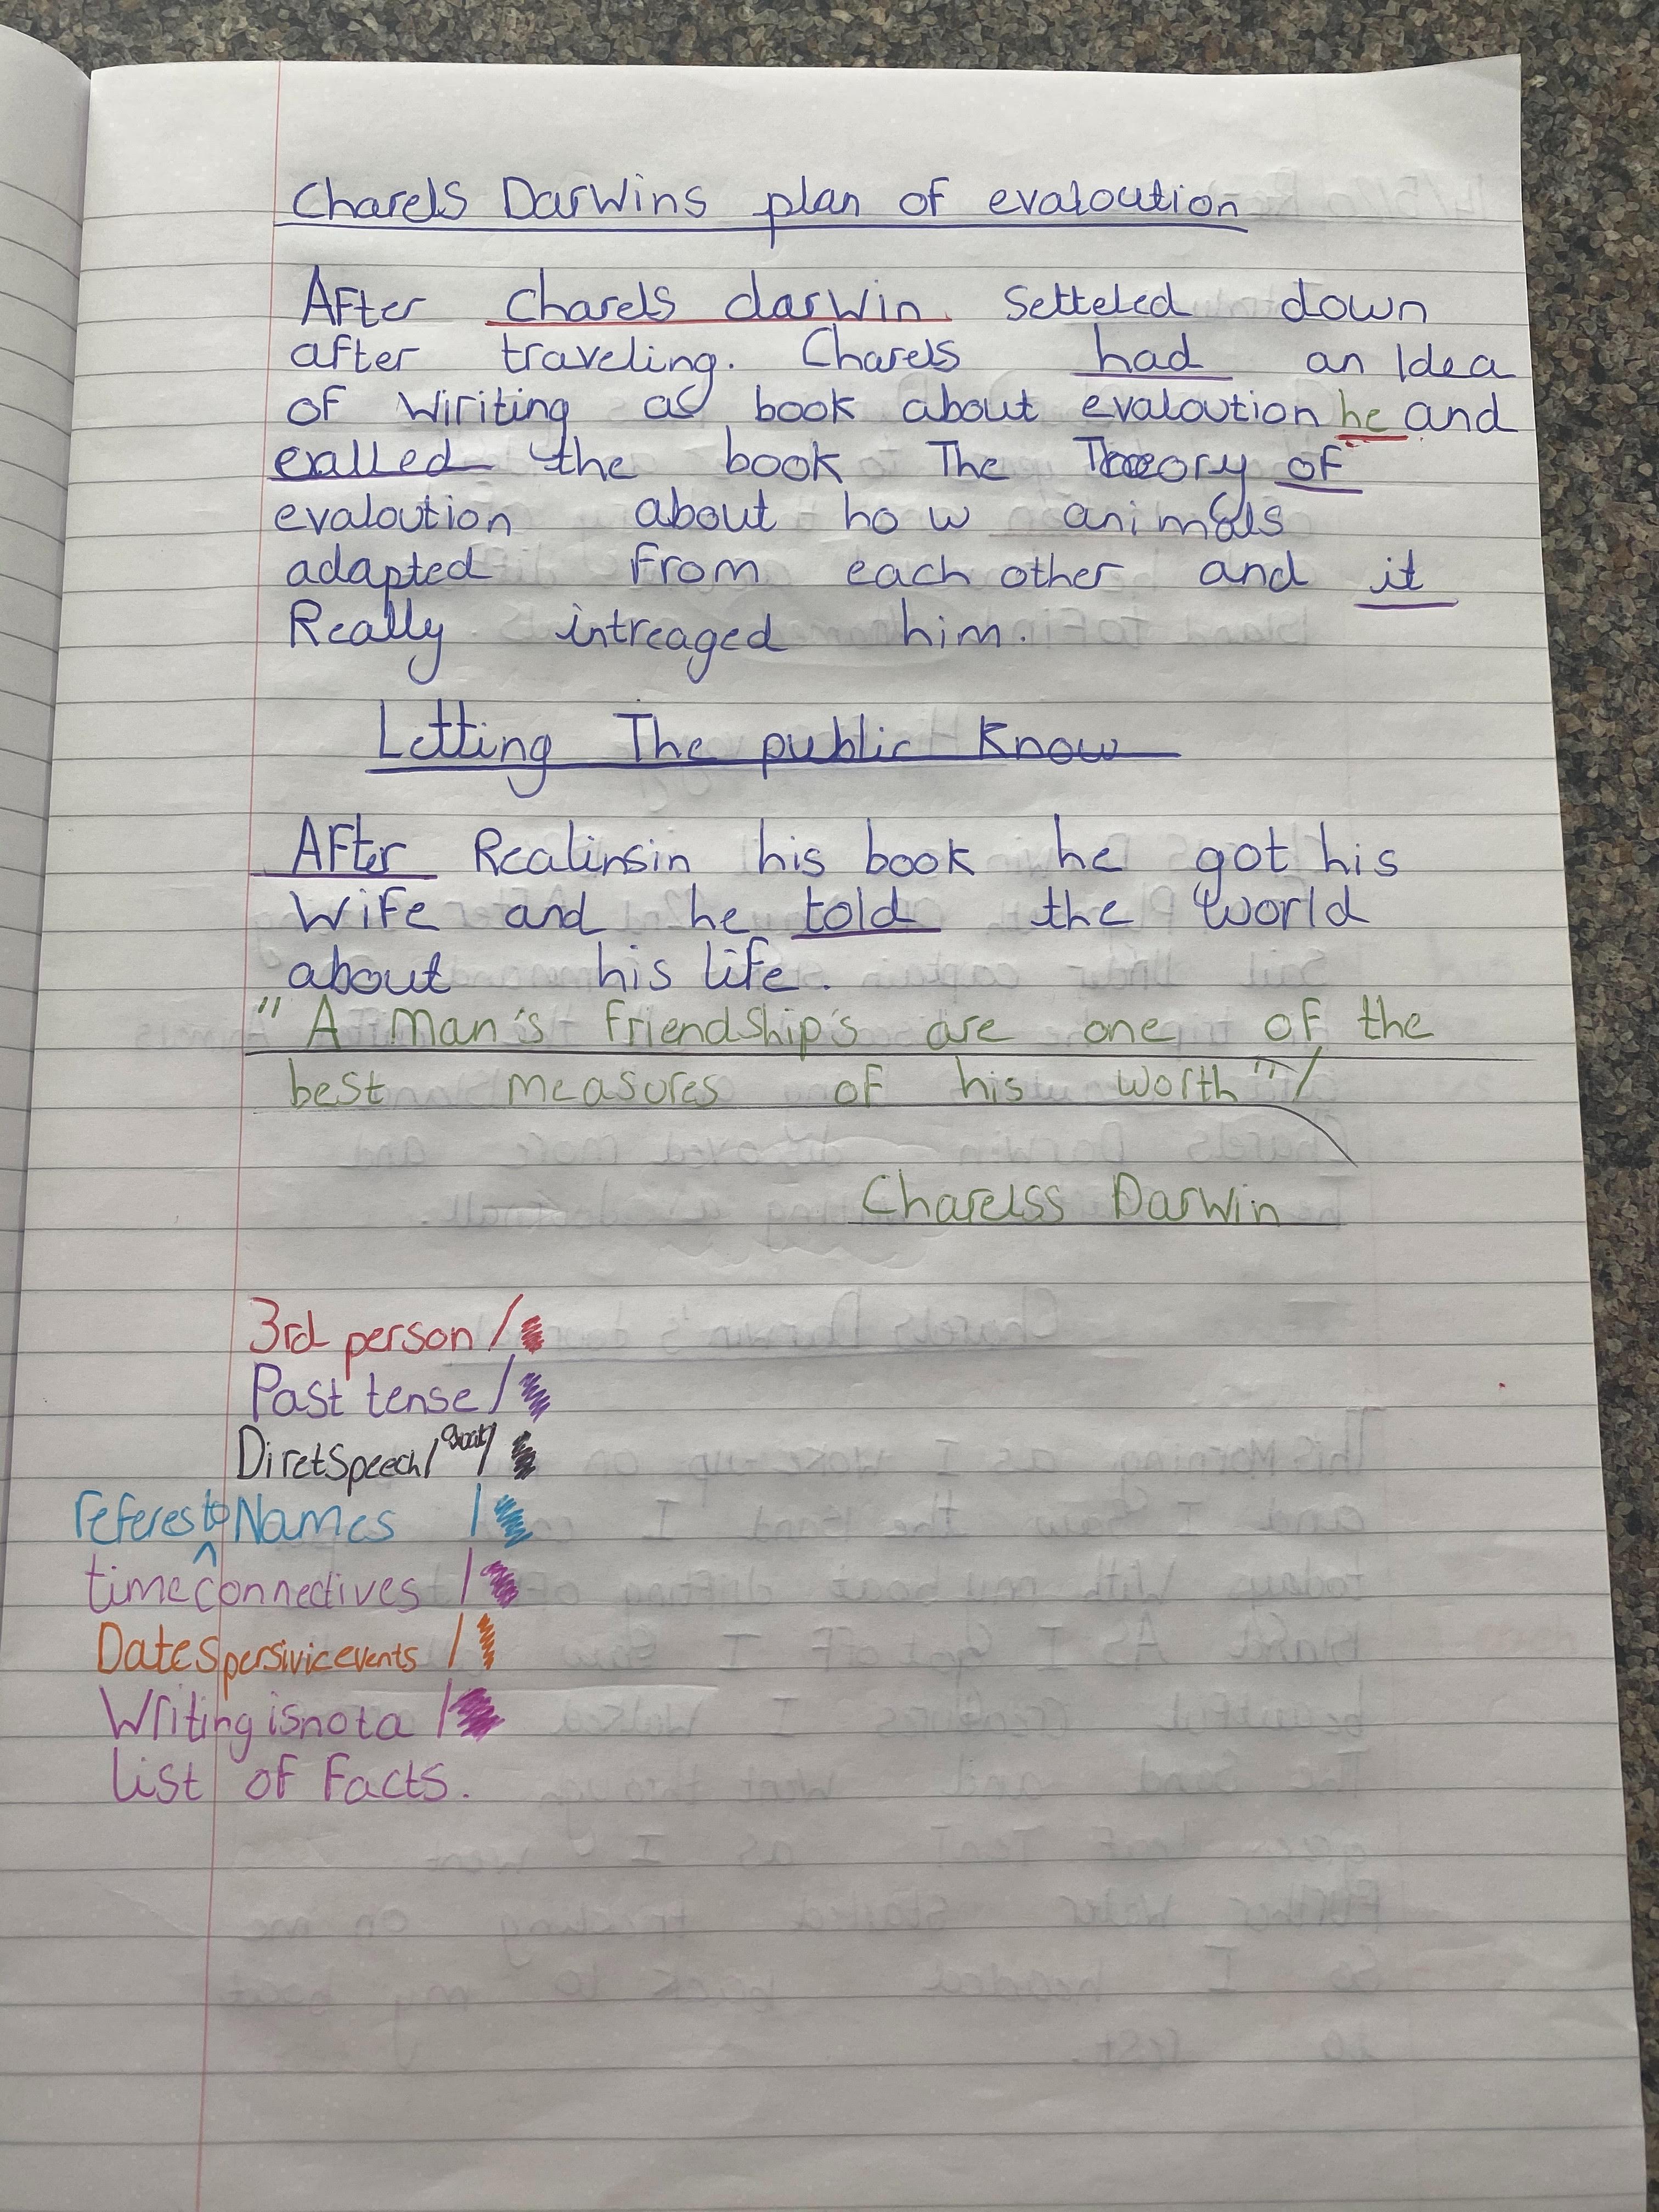 Charels Darwins plan of evaloution
After Charels darwin Setteled down
after traveling. Charels had an Idea
of Wiriting a book about evaloution he and
called the book The Theory of
evaloution about how animals
adapted From each other and it
Really intreaged him.
Letting The public Know
After Realinsin his book he got his
Wife and he told the World
about his life.
"A Man's Friendship's are one of the
best measures of his worth"/
Charelss Darwin
3rd person /
Past tense /
Diret Speech / /
referes to Names /
time connectives /
Date Spersivic events /
Writing is not a /
list of Facts.